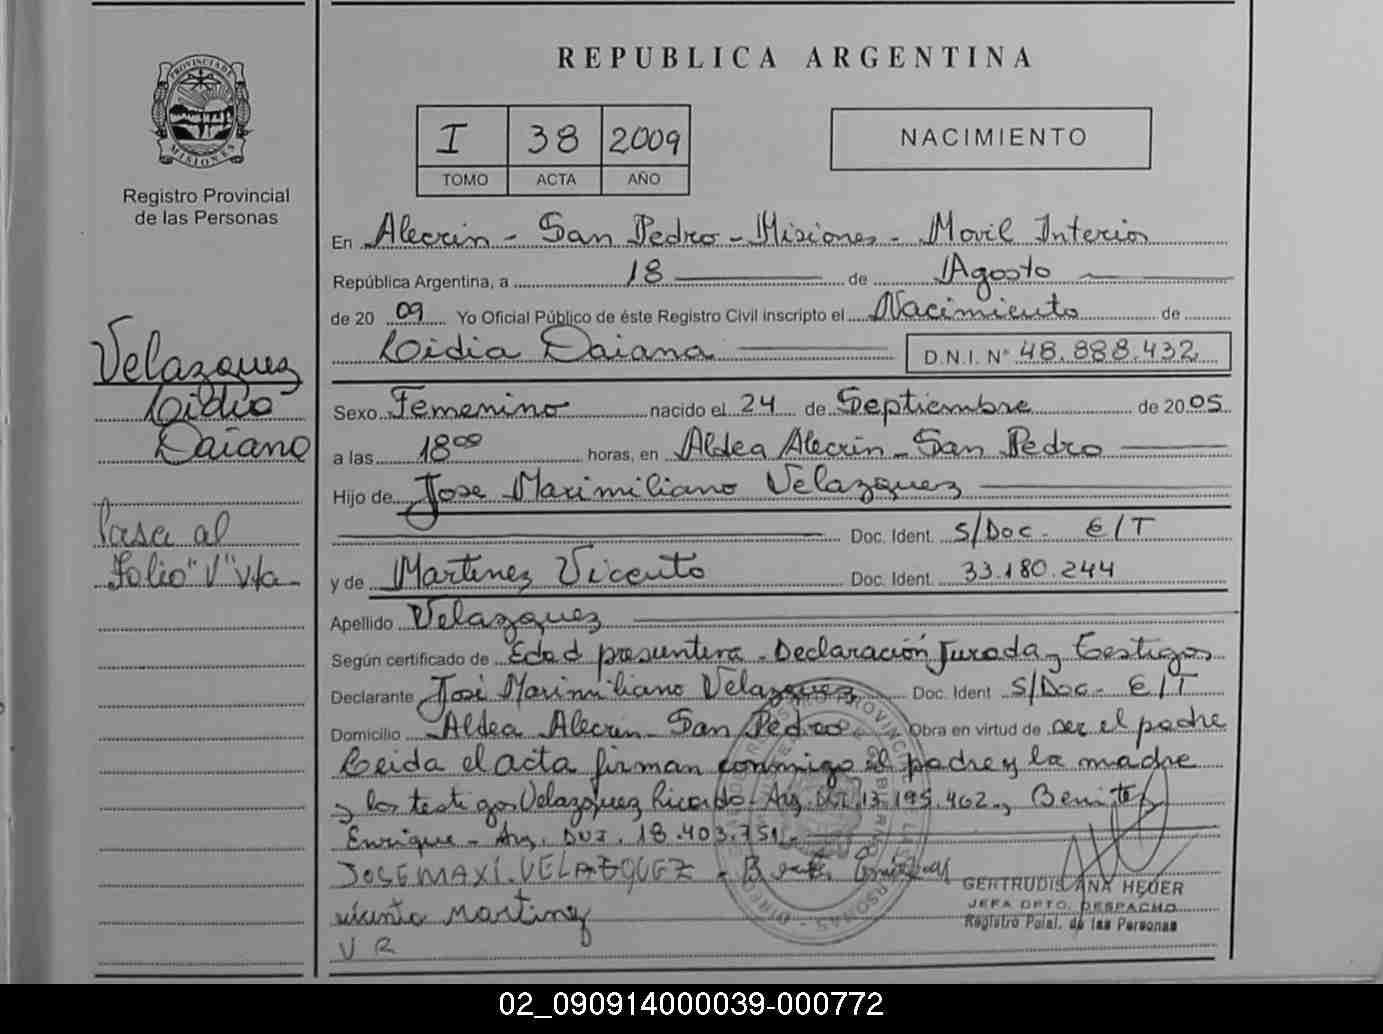 PROVINCIA DE
MISIONES
Registro Provincial
de las Personas
Velazquez
Lidia
Daiana
Pasa al
Folio "V" Vta
REPUBLICA ARGENTINA
I 38 2009
TOMO ACTA AÑO
NACIMIENTO
En Alecrin - San Pedro - Misiones - Movil Interior
República Argentina, a 18 de Agosto
de 20 09 Yo Oficial Público de éste Registro Civil inscripto el Nacimiento de
Lidia Daiana D.N.I. N° 48.888.432
Sexo Femenino nacido el 24 de Septiembre de 2005
a las 18 00 horas, en Aldea Alecrin - San Pedro
Hijo de Jose Maximiliano Velazquez
Doc. Ident. S/Doc - E/T
y de Martinez Vicenta Doc. Ident. 33.180.244
Apellido Velazquez
Según certificado de Edad presuntiva - Declaración Jurada y Testigos
Declarante José Maximiliano Velazquez Doc. Ident S/Doc - E/T
Domicilio Aldea Alecrin - San Pedro Obra en virtud de ser el padre
Leida el acta firman conmigo el padre y la madre
y los testigos Velazquez Ricardo - Arg. DNI. 13.195.462 y Benitez
Enrique - Arg. DNI. 18.403.751
JOSE MAXI. VELAZQUEZ
vicenta Martinez
V R
GERTRUDIS ANA HEUER
JEFA DPTO. DESPACHO
Registro Pcial. de las Personas
02_090914000039-000772